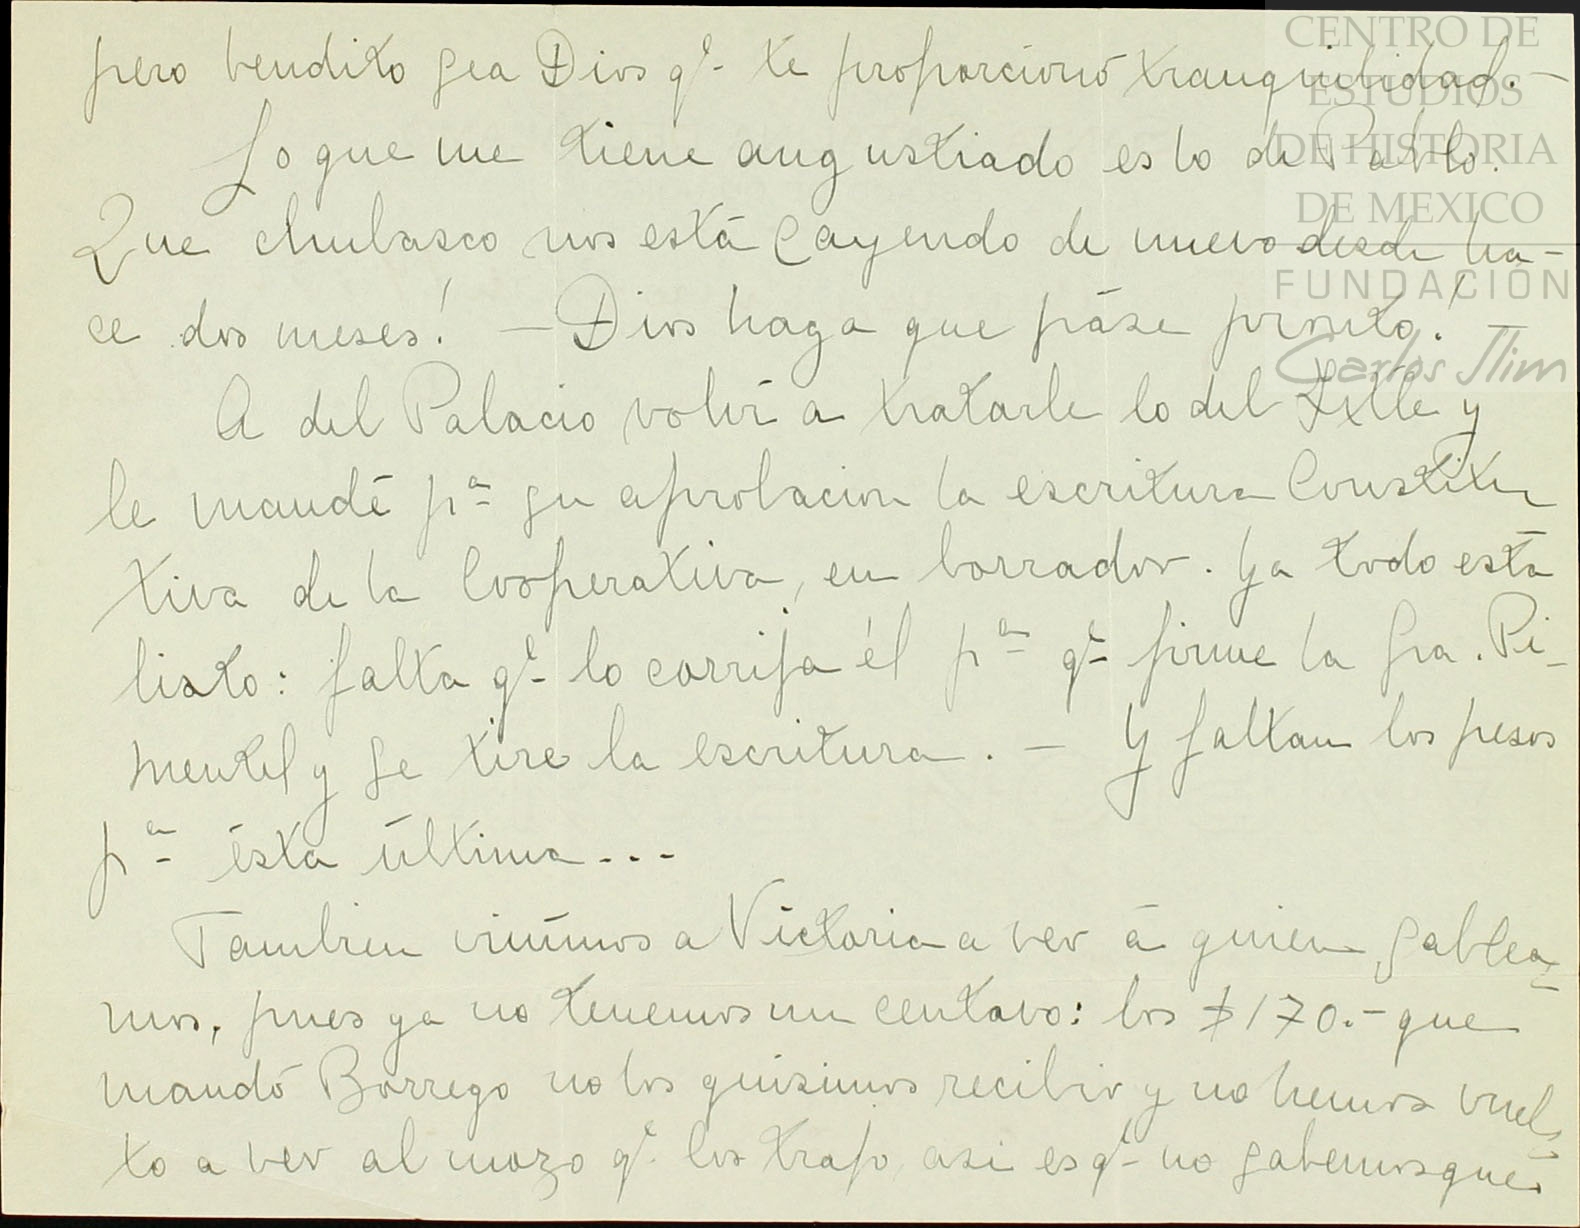 pero bendito sea Dios qe te proporcionó tranquilidad. —
Lo que me tiene angustiado es lo de Pablo.
Que chubasco nos está cayendo de nuevo desde ha-
ce dos meses! — Dios haga que páse pronto!
A del Palacio volví a tratarle lo del y
le mandé pa su aprobacion la escritura Constitu
tiva de la Cooperativa, en borrador. Ya todo está
listo: falta qe lo corrija él pa qe firme la Sra. Pi-
mentel y se tire la escritura. — Y faltan los pesos
pa ésta última...
Tambien vinimos a Victoria a ver á quien sablea-
mos, pues ya no tenemos un centavo: los $170.- que
mandó Borrego no los quisimos recibir y no hemos vuel-
to a ver al mozo qe los trajo, asi es qe no sabemos que
CENTRO DE
ESTUDIOS
DE HISTORIA
DE MEXICO
FUNDACIÓN
Carlos Slim